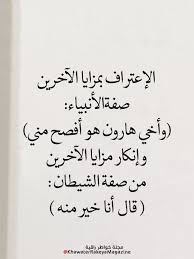 الإعتراف بمزايا الآخرين
صفة الأنبياء:
(وأخي هارون هو أفصح مني)
وإنكار مزايا الآخرين
من صفة الشيطان:
( قال أنا خير منه )
مجلة خواطر راقية
@KhawaterRakeyaMagazine